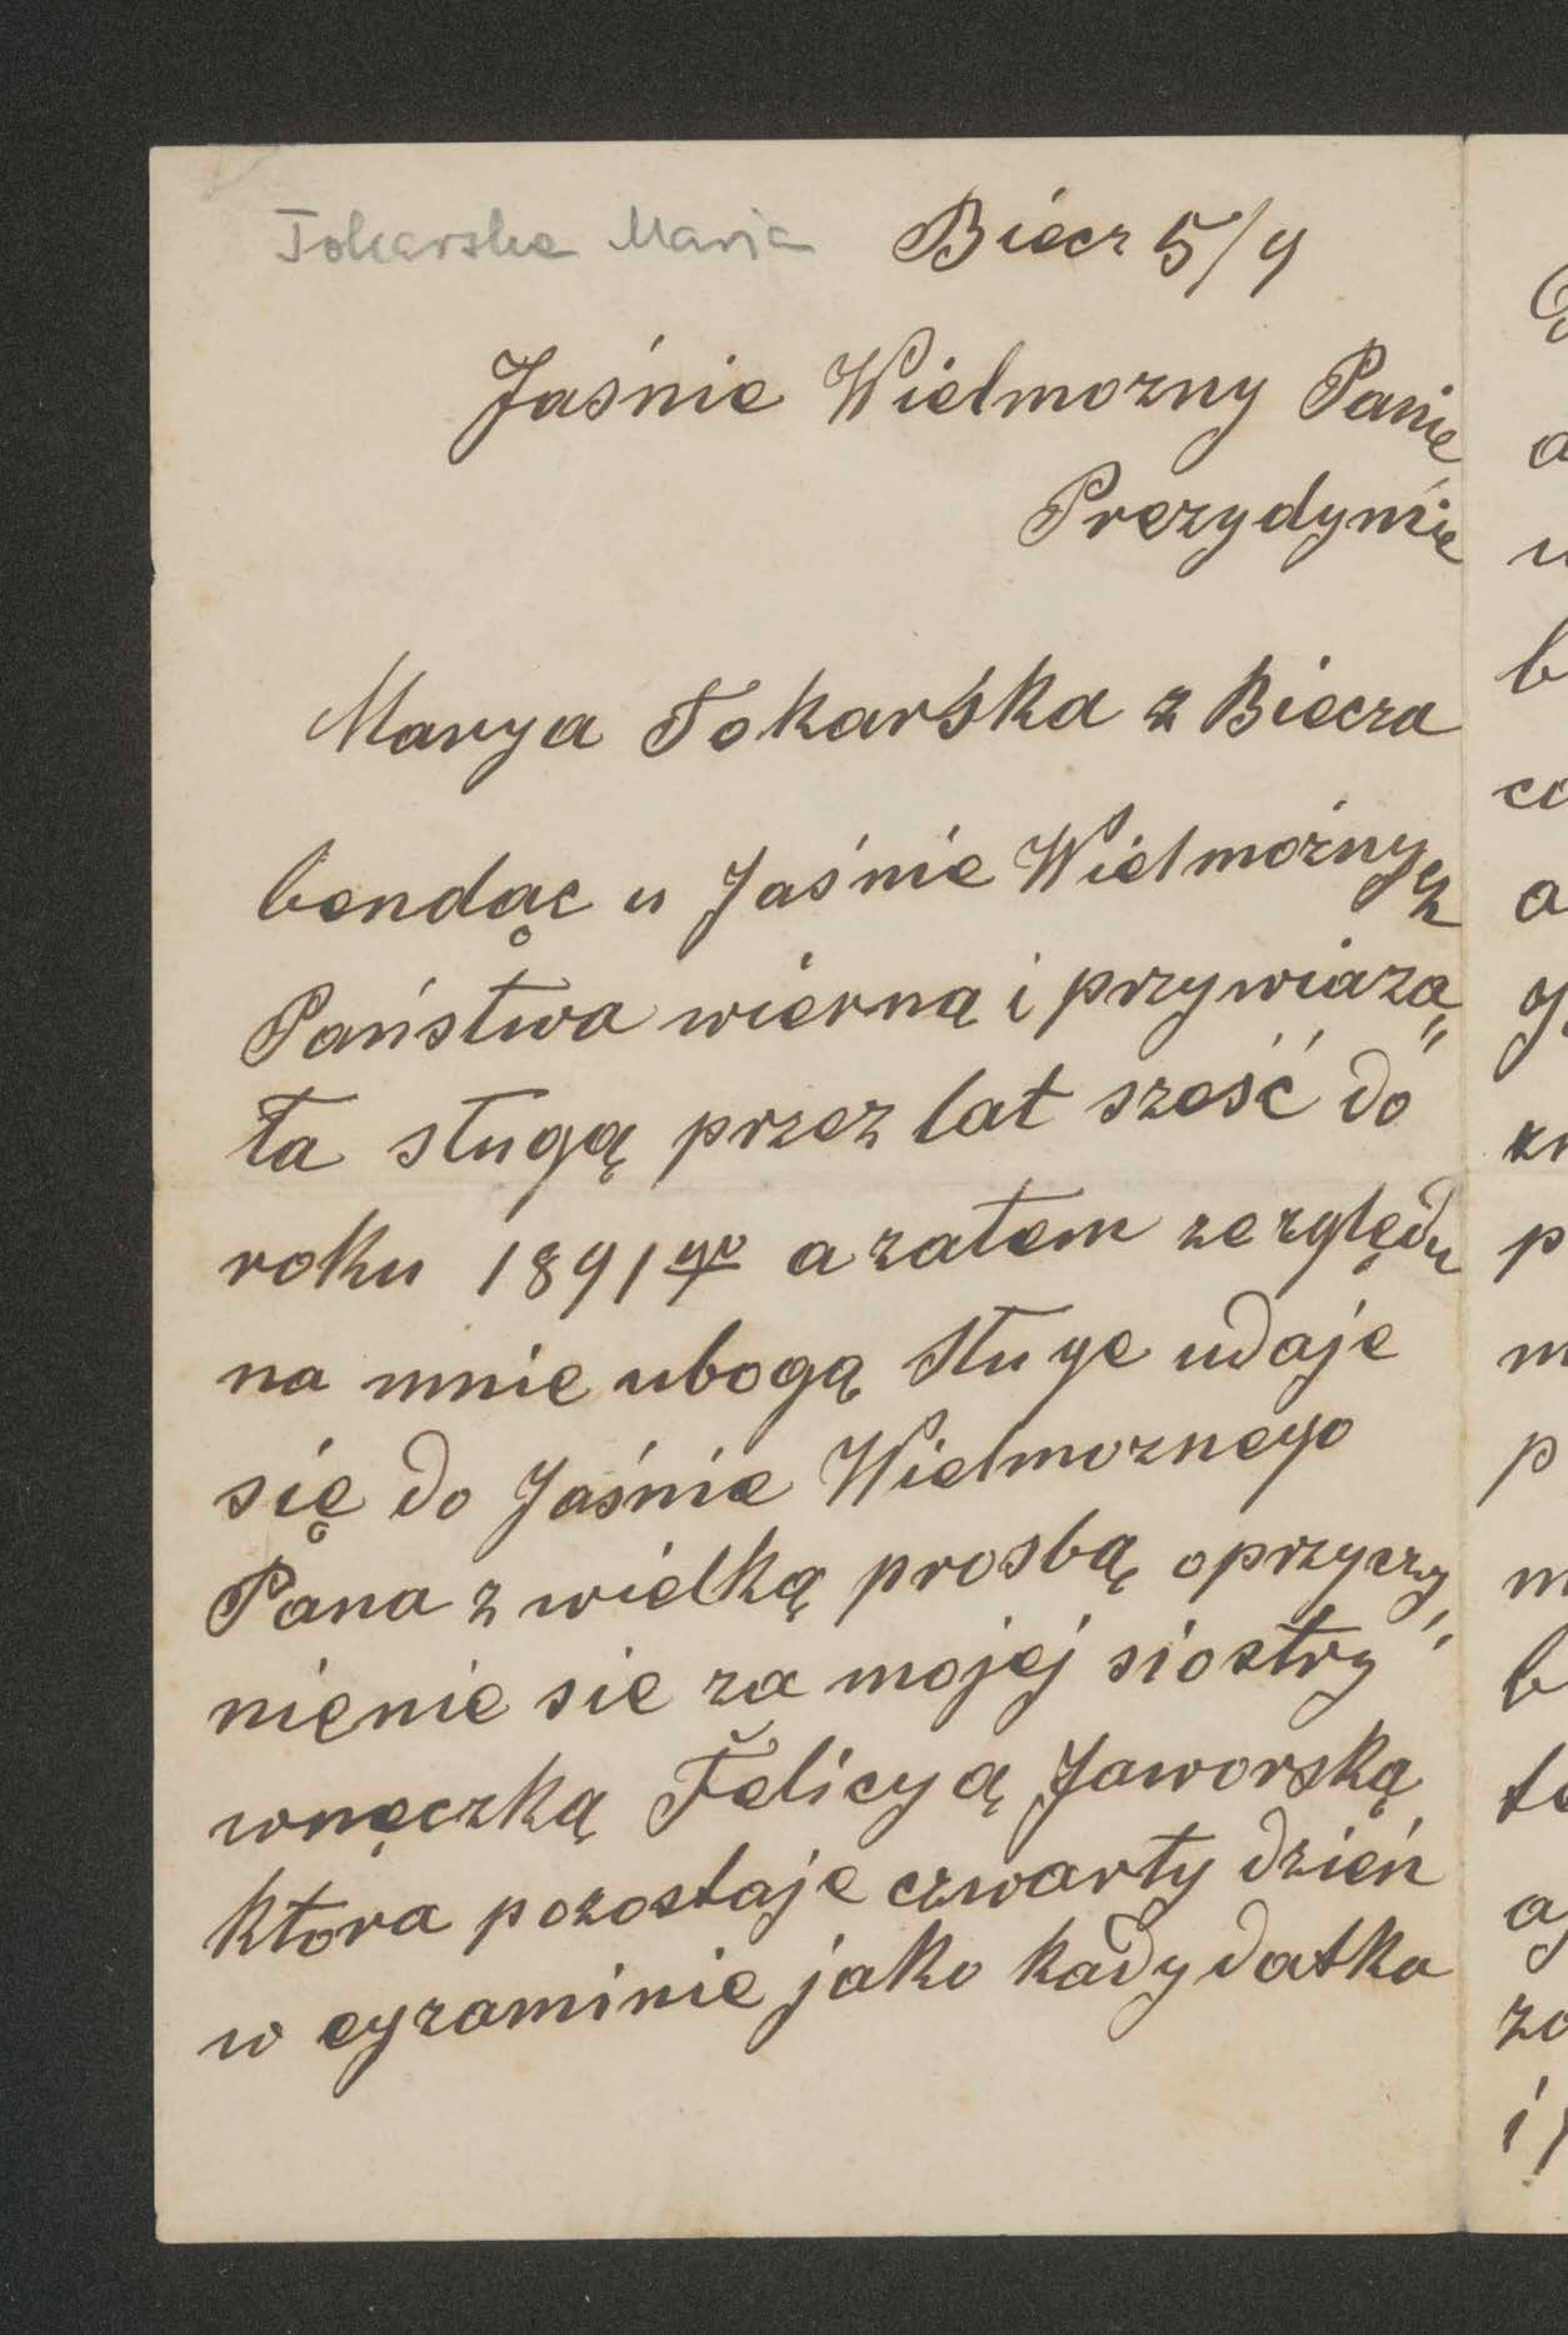 Tokarska Maria
Biecz 5/9
Jaśnie Wielmozny Panie
Prezydymie
Marya Tokarska z Biecza
bendąc u Jaśnie Wielmożnych
Państwa wierną i przywiaza„
ta sługą przez lat sześć do
roku 1891go a zatem ze zględu
na mnie ubogą sługe udaje
się do Jaśnie Wielmoznego
Pana z wielką prosbą oprzyczy„
nienie sie za mojej siostry
wnęczką Felicyą Jaworską
ktora pozostaje czwarty dzień
w egzaminie jako kadydatka